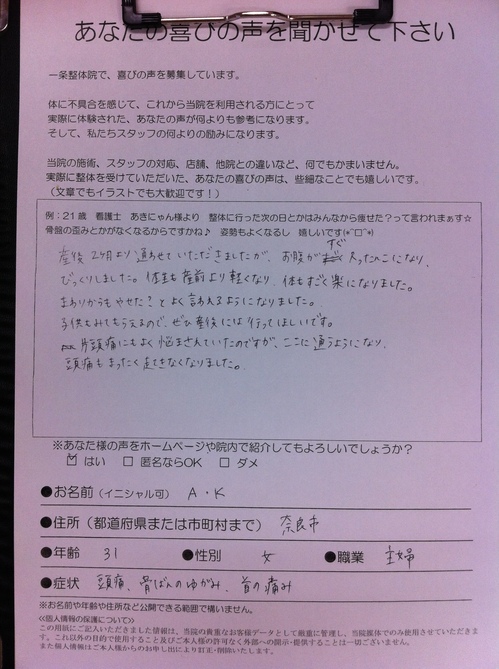 あなたの喜びの声を聞かせて下さい
一条整体院で、喜びの声を募集しています。
体に不具合を感じて、これから当院を利用される方にとって
実際に体験された、あなたの声が何よりも参考になります。
そして、私たちスタッフの何よりの励みになります。
当院の施術、スタッフの対応、店舗、他院との違いなど、何でもかまいません。
実際に整体を受けていただいた、あなたの喜びの声は、些細なことでも嬉しいです。
(文章でもイラストでも大歓迎です!)
例:21歳 看護士 あきにゃん様より 整体に行った次の日とかはみんなから痩せた?って言われまぁす☆
骨盤の歪みとかがなくなるからですかね♪ 姿勢もよくなるし 嬉しいです(*^□^*)
産後2ヶ月より通わせていただきましたが、お腹がすぐ大ったんこになり、
びっくりしました。体重も産前より軽くなり、体もすごく楽になりました。
まわりからもやせた?とよく言われるようになりました。
子供もみてもらえるので、ぜひ産後には行ってほしいです。
片頭痛にもよく悩まされていたのですが、ここに通うようになり、
頭痛もまったく起きなくなりました。
※あなた様の声をホームページや院内で紹介してもよろしいでしょうか?
☑ はい □ 匿名ならOK □ ダメ
●お名前(イニシャル可) A・K
●住所(都道府県または市町村まで) 奈良市
●年齢 31 ●性別 女 ●職業 主婦
●症状 頭痛、骨ばんのゆがみ、首の痛み
※お名前や年齢や住所など公開できる範囲で構いません。
<<個人情報の保護について>>
この用紙にご記入いただきました情報は、当院の貴重なお客様データとして厳重に管理し、当院媒体でのみ使用させていただきます。これ以外の目的で使用すること及びご本人様の許可なく外部への開示・提供することは一切ございません。
また個人情報はご本人様からのお申し出により訂正・削除いたします。